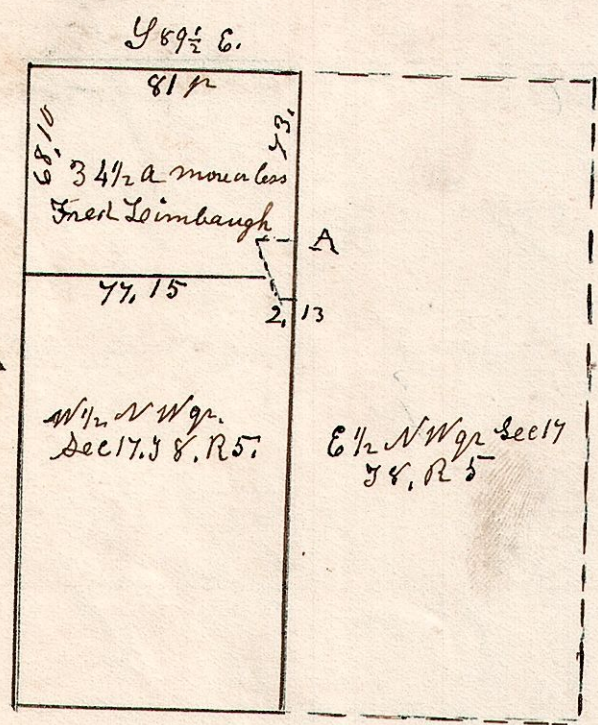 S 89½ E.
81 p
68,10
73,
34½ a more or less
Fred Leimbaugh
A
77,15
2,13
W½ N W qr.
Sec 17. T 8, R 5.
E½ N W qr Sec 17
T 8, R 5